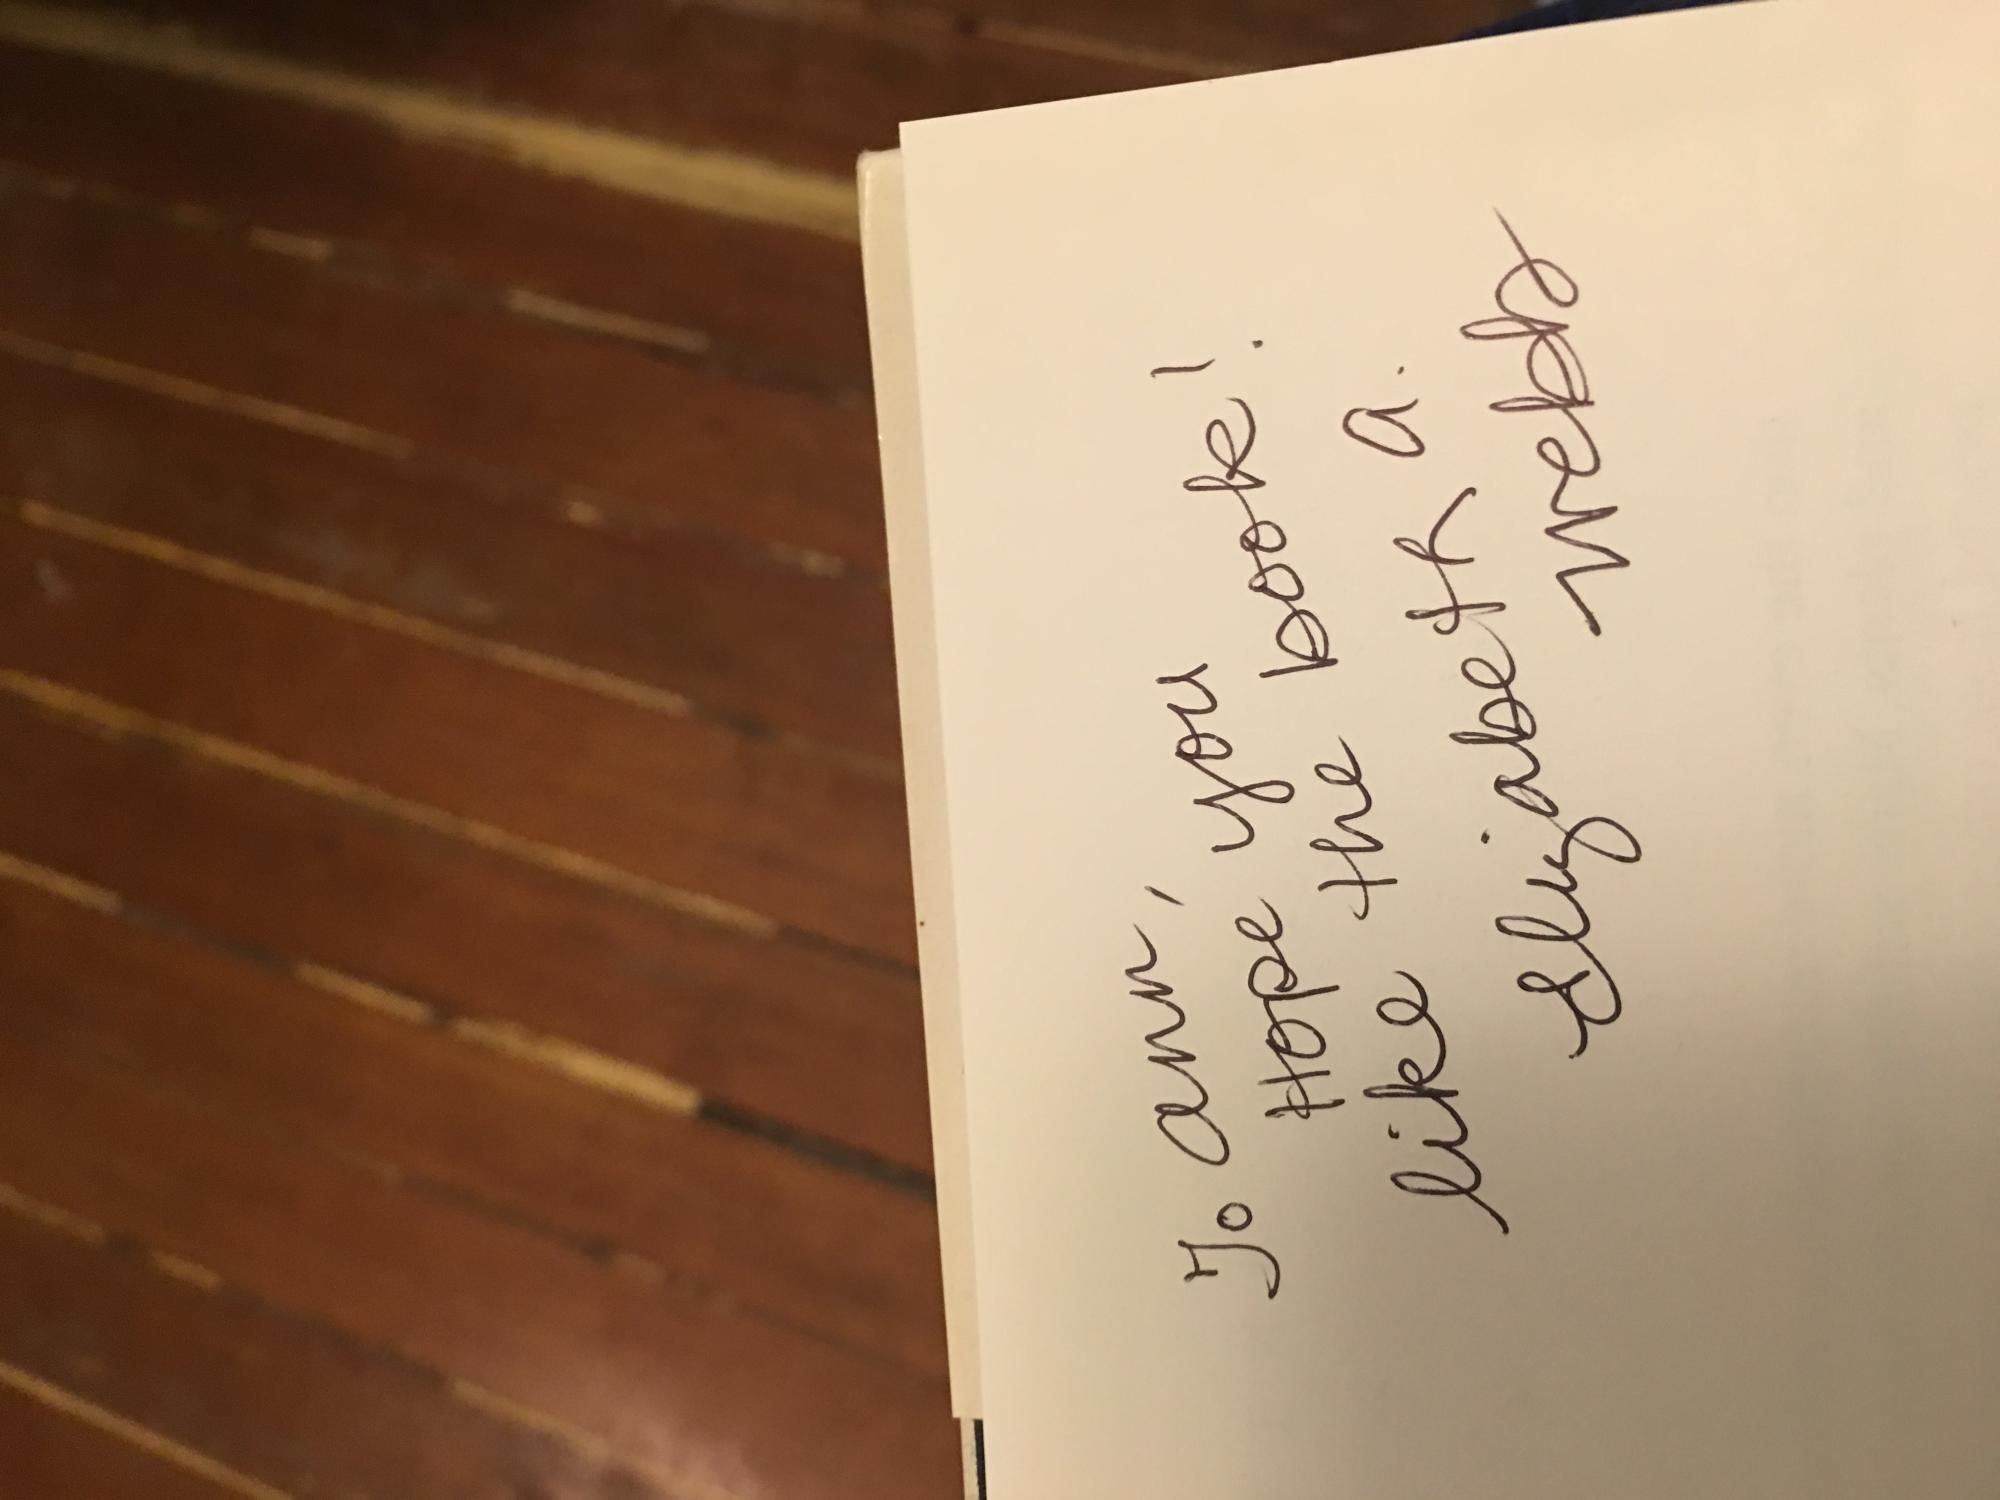 To Ann,
Hope you
like the book!
Elizabeth A.
Webb